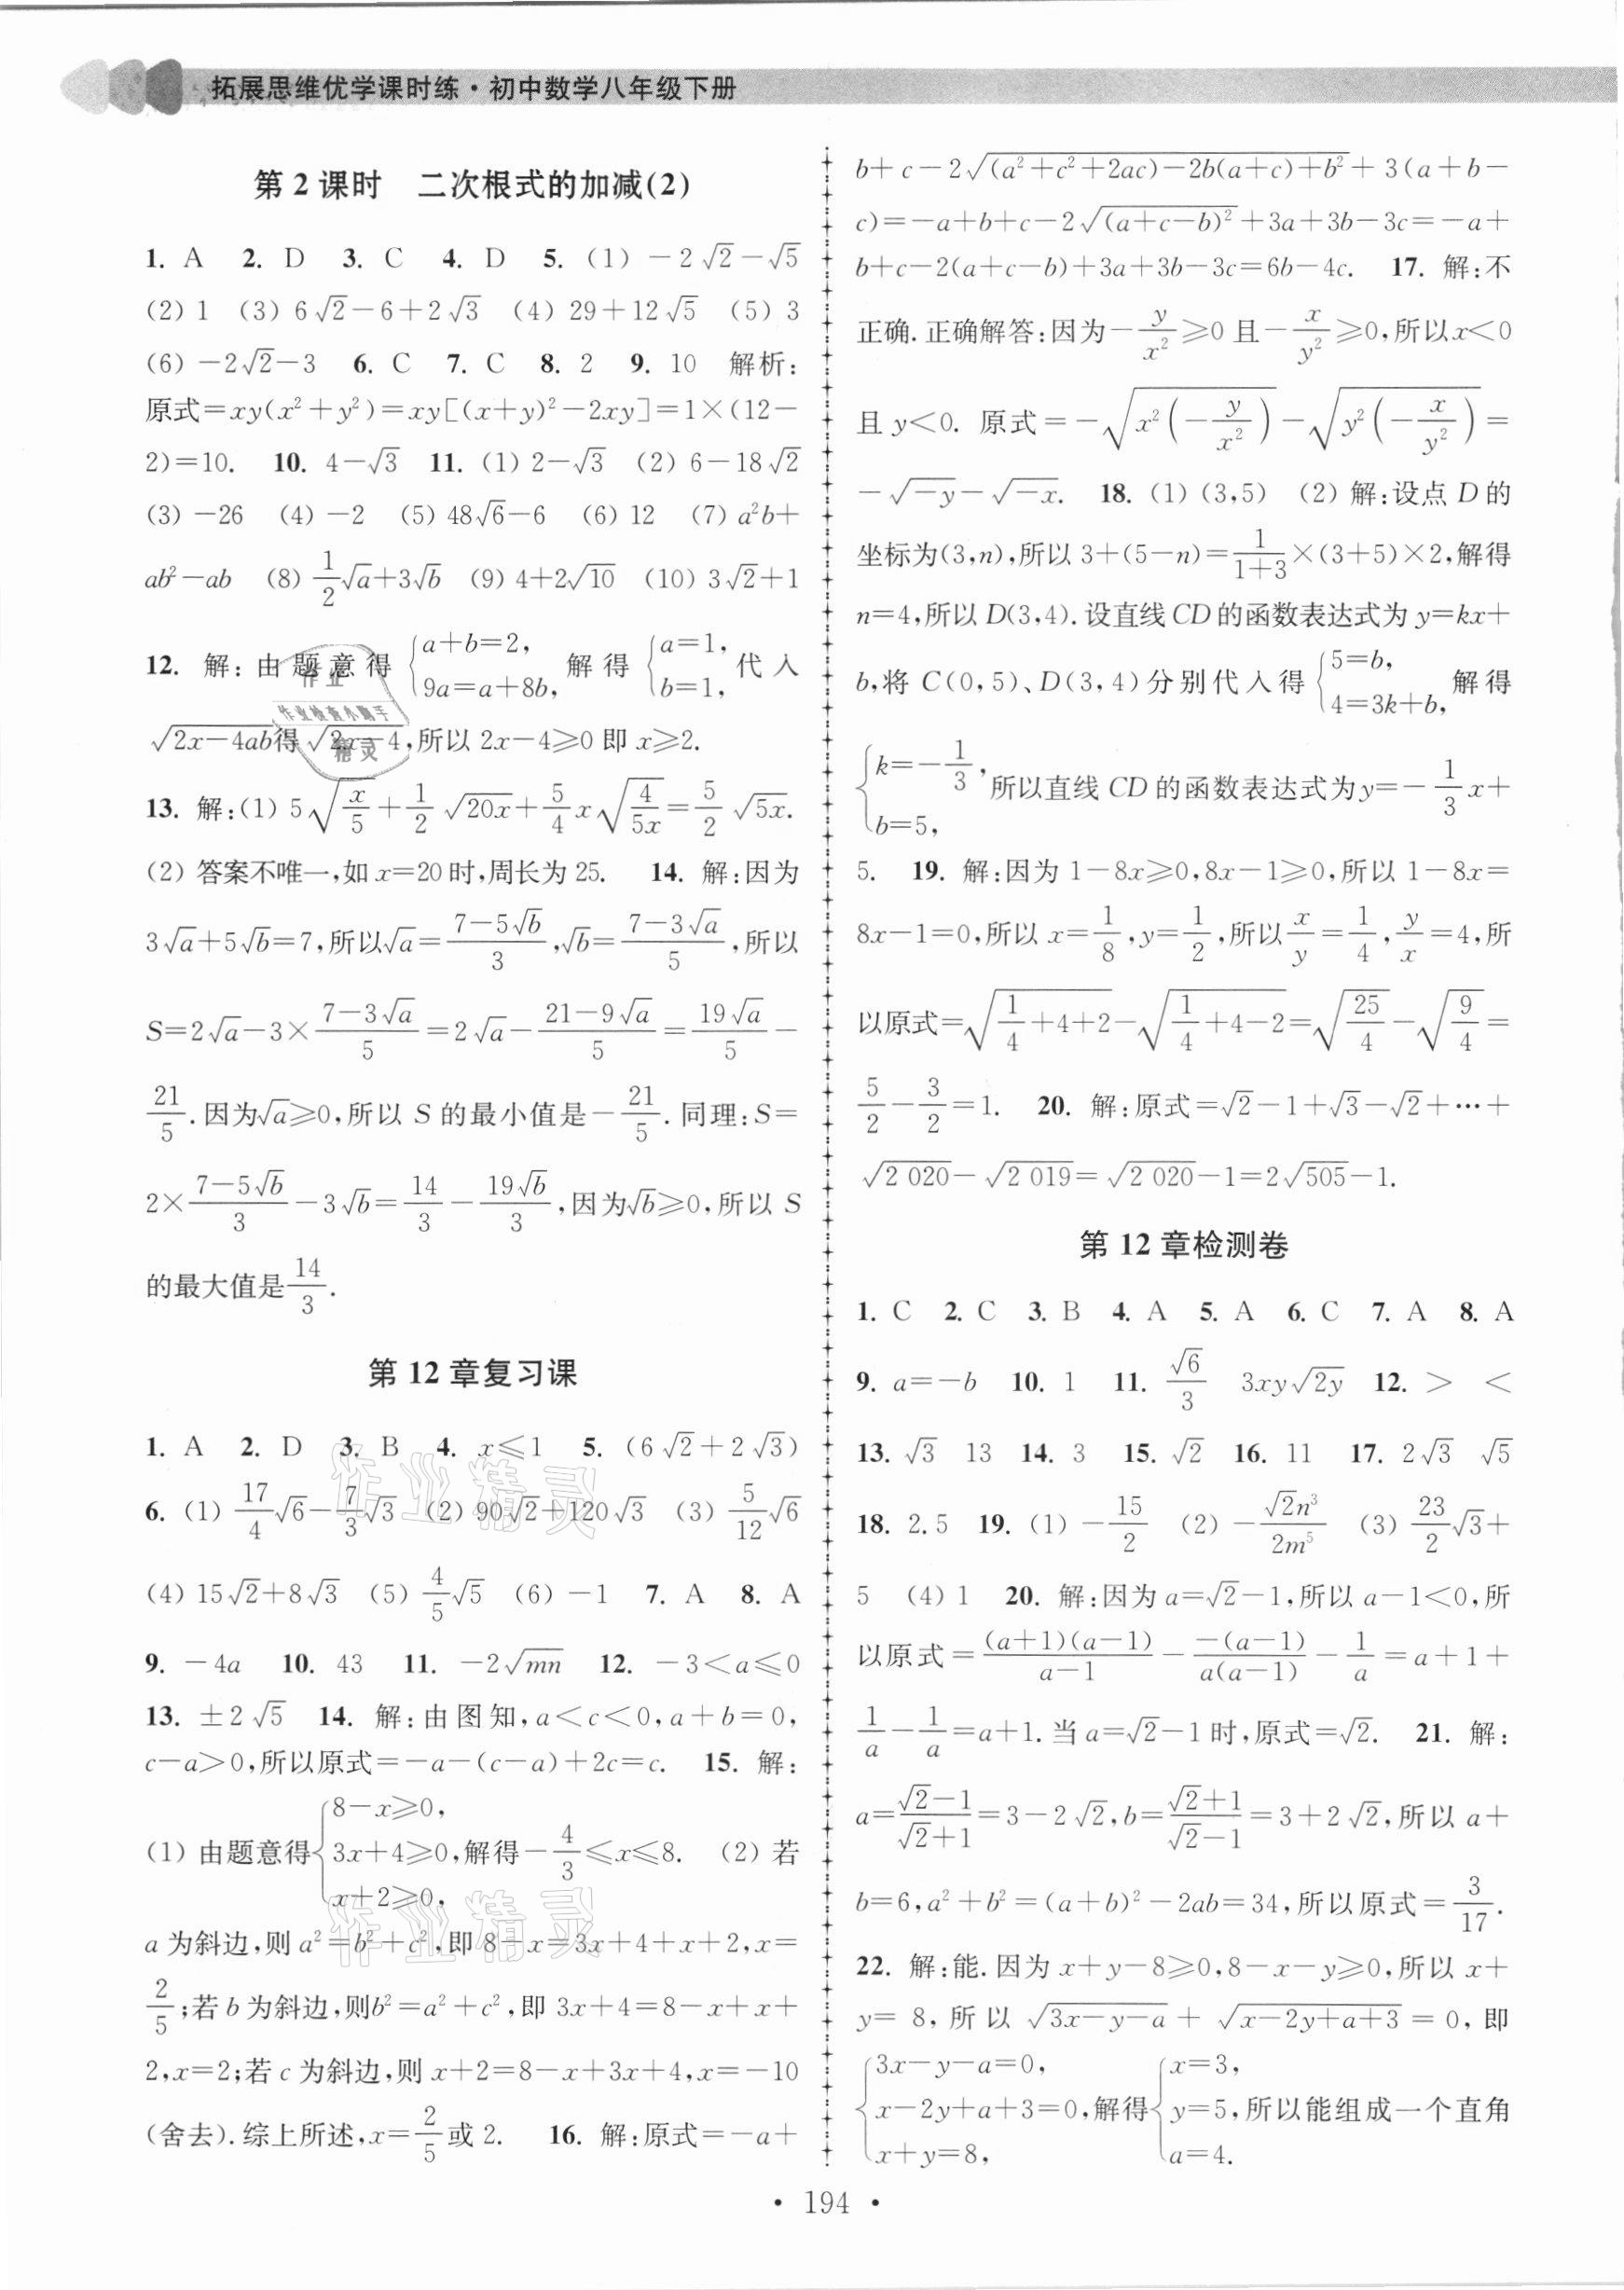 拓展思维优学课时练·初中数学八年级下册
第2课时 二次根式的加减(2)
1. A 2. D 3. C 4. D 5. (1) −2√2−√5
(2) 1 (3) 6√2−6+2√3 (4) 29+12√5 (5) 3
(6) −2√2−3 6. C 7. C 8. 2 9. 10 解析:
原式=xy(x²+y²)=xy[(x+y)²−2xy]=1×(12−
2)=10. 10. 4−√3 11. (1) 2−√3 (2) 6−18√2
(3) −26 (4) −2 (5) 48√6−6 (6) 12 (7) a²b+
ab²−ab (8) 1/2√a+3√b (9) 4+2√10 (10) 3√2+1
12. 解:由题意得{a+b=2, 9a=a+8b, 解得{a=1, b=1, 代入
√(2x−4ab)得√(2x−4),所以2x−4⩾0即x⩾2.
13. 解:(1) 5√(x/5)+1/2√(20x)+5/4x√(4/(5x))=5/2√(5x).
(2) 答案不唯一,如x=20时,周长为25. 14. 解:因为
3√a+5√b=7,所以√a=(7−5√b)/3,√b=(7−3√a)/5,所以
S=2√a−3×(7−3√a)/5=2√a−(21−9√a)/5=19√a/5−
21/5.因为√a⩾0,所以S的最小值是−21/5.同理:S=
2×(7−5√b)/3−3√b=14/3−19√b/3,因为√b⩾0,所以S
的最大值是14/3.
第12章复习课
1. A 2. D 3. B 4. x⩽1 5. (6√2+2√3)
6. (1) 17/4√6−7/3√3 (2) 90√2+120√3 (3) 5/12√6
(4) 15√2+8√3 (5) 4/5√5 (6) −1 7. A 8. A
9. −4a 10. 43 11. −2√(mn) 12. −3<a⩽0
13. ±2√5 14. 解:由图知,a<c<0,a+b=0,
c−a>0,所以原式=−a−(c−a)+2c=c. 15. 解:
(1) 由题意得{8−x⩾0, 3x+4⩾0, x+2⩾0, 解得−4/3⩽x⩽8. (2) 若
a为斜边,则a²=b²+c²,即8−x=3x+4+x+2,x=
2/5;若b为斜边,则b²=a²+c²,即3x+4=8−x+x+
2,x=2;若c为斜边,则x+2=8−x+3x+4,x=−10
(舍去).综上所述,x=2/5或2. 16. 解:原式=−a+
b+c−2√((a²+c²+2ac)−2b(a+c)+b²)+3(a+b−
c)=−a+b+c−2√((a+c−b)²)+3a+3b−3c=−a+
b+c−2(a+c−b)+3a+3b−3c=6b−4c. 17. 解:不
正确.正确解答:因为−y/x²⩾0且−x/y²⩾0,所以x<0
且y<0. 原式=−√(x²(−y/x²))−√(y²(−x/y²))=
−√(−y)−√(−x). 18. (1) (3,5) (2) 解:设点D的
坐标为(3,n),所以3+(5−n)=1/(1+3)×(3+5)×2,解得
n=4,所以D(3,4).设直线CD的函数表达式为y=kx+
b,将C(0,5)、D(3,4)分别代入得{5=b, 4=3k+b, 解得
{k=−1/3, b=5, 所以直线CD的函数表达式为y=−1/3x+
5. 19. 解:因为1−8x⩾0,8x−1⩾0,所以1−8x=
8x−1=0,所以x=1/8,y=1/2,所以x/y=1/4,y/x=4,所
以原式=√(1/4+4+2)−√(1/4+4−2)=√(25/4)−√(9/4)=
5/2−3/2=1. 20. 解:原式=√2−1+√3−√2+⋯+
√2 020−√2 019=√2 020−1=2√505−1.
第12章检测卷
1. C 2. C 3. B 4. A 5. A 6. C 7. A 8. A
9. a=−b 10. 1 11. √6/3 3xy√(2y) 12. > <
13. √3 13 14. 3 15. √2 16. 11 17. 2√3 √5
18. 2.5 19. (1) −15/2 (2) −√2n³/(2m⁵) (3) 23/2√3+
5 (4) 1 20. 解:因为a=√2−1,所以a−1<0,所
以原式=(a+1)(a−1)/(a−1)−−(a−1)/(a(a−1))−1/a=a+1+
1/a−1/a=a+1.当a=√2−1时,原式=√2. 21. 解:
a=(√2−1)/(√2+1)=3−2√2,b=(√2+1)/(√2−1)=3+2√2,所以a+
b=6,a²+b²=(a+b)²−2ab=34,所以原式=3/17.
22. 解:能.因为x+y−8⩾0,8−x−y⩾0,所以x+
y=8,所以√(3x−y−a)+√(x−2y+a+3)=0,即
{3x−y−a=0, x−2y+a+3=0, x+y=8, 解得{x=3, y=5, a=4. 所以能组成一个直角
·194·
作业
作业检查小助手
精灵
作业精灵
作业精灵